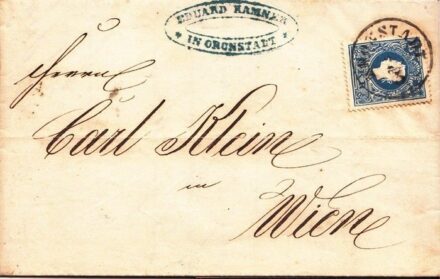 EDUARD KAMNER
* IN ORONSTADT *
Herrn
Carl Kleine
in
Wien